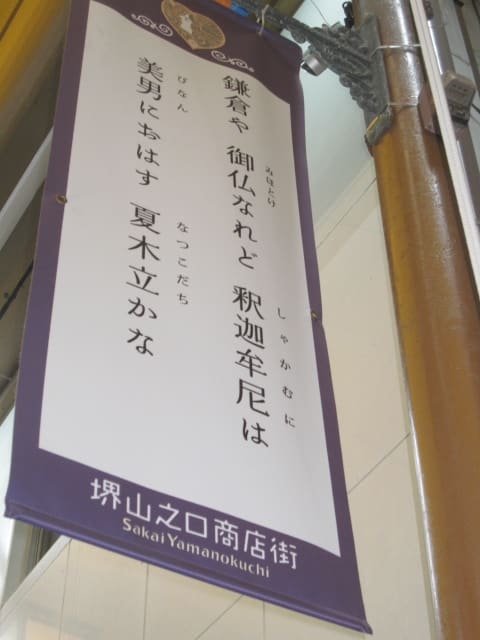 鎌倉や 御仏なれど 釈迦牟尼は
みほとけ
しゃかむに
美男におはす 夏木立かな
びなん
なつこだち
堺山之口商店街
Sakai Yamanokuchi